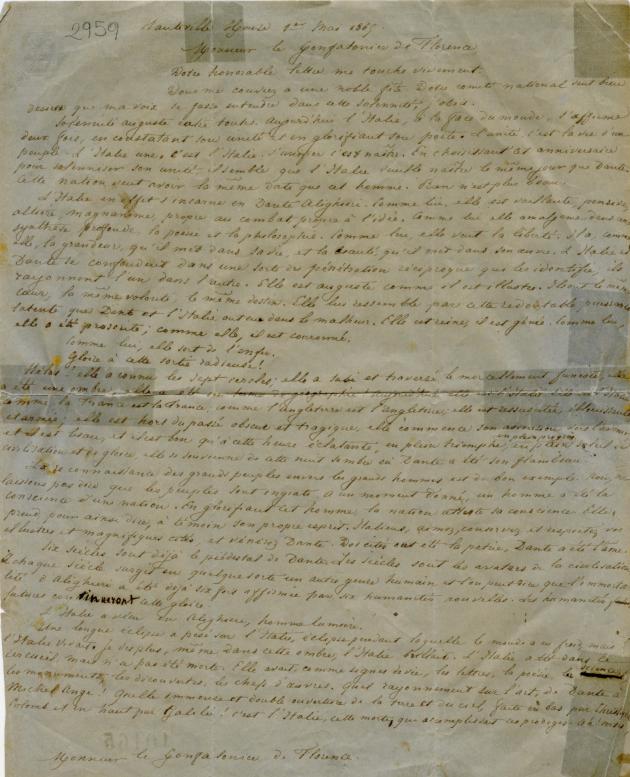 2959
Hauteville House 1er Mai 1865.
Monsieur le Gonfalonier de Florence
Votre honorable lettre me touche vivement.
Vous me conviez à une noble fête. Votre comité national veut bien
désirer que ma voix se fasse entendre dans cette solennité,
solennité auguste entre toutes. Aujourd'hui l'Italie, à la face du monde, s'affirme
deux fois, en constatant son unité et en glorifiant son poète. L'unité, c'est la vie d'un
peuple. L'Italie une, c'est l'Italie. S'unifier c'est naître. En choisissant cet anniversaire
pour solenniser son unité il semble que l'Italie veuille naître le même jour que Dante.
Cette nation veut avoir la même date que cet homme. Rien n'est plus beau.
L'Italie en effet s'incarne en Dante Alighieri. Comme lui, elle est vaillante, pensive,
altière, magnanime, propre au combat, propre à l'idée. Comme lui elle amalgame dans une
synthèse profonde, la poésie et la philosophie. Comme lui, elle veut la liberté. Il a, comme
elle, la grandeur, qu'il met dans sa vie, et la beauté, qu'il met dans son œuvre. L'Italie et
Dante se confondent dans une sorte de pénétration réciproque qui les identifie, ils
rayonnent l'un dans l'autre. Elle est auguste comme il est illustre. Ils ont le même
cœur, la même volonté, le même destin. Elle lui ressemble par cette redoutable puissance
latente que Dante et l'Italie ont eue dans le malheur. Elle est reine, il est génie. Comme lui,
elle a été proscrite; comme elle, il est couronné.
Comme lui, elle sort de l'enfer.
Gloire à cette sortie radieuse!
Hélas! elle a connu les sept cercles; elle a subi et traversé le morcellement funeste, elle
a été une ombre, elle a été un
comme la France est la France, comme l'Angleterre est l'Angleterre; elle est ressuscitée, éblouissante
et armée; elle est hors du passé obscur et tragique, elle commence son ascension vers l'avenir
et il est beau, et il est bon qu'à cette heure éclatante, en plein triomphe, en plein progrès, en plein soleil de
civilisation et de gloire, elle se souvienne de cette nuit sombre où Dante a été son flambeau.
La reconnaissance des grands peuples envers les grands hommes est de bon exemple. Non, ne
laissons pas dire que les peuples sont ingrats. À un moment donné, un homme a été la
conscience d'une nation. En glorifiant cet homme, la nation atteste sa conscience. Elle
prend, pour ainsi dire, à témoin son propre esprit. Italiens, aimez, conservez et respectez vos
illustres et magnifiques cités, et vénérez Dante. Vos cités ont été la patrie, Dante a été l'âme.
Six siècles sont déjà le piédestal de Dante. Les siècles sont les avatars de la civilisation.
À chaque siècle surgit en quelque sorte un autre genre humain et l'on peut dire que l'immorta-
lité d'Alighieri a été déjà six fois affirmée par six humanités nouvelles. Les humanités
futures continueront cette gloire.
L'Italie a vécu en Alighieri, homme lumière.
Une longue éclipse a pesé sur l'Italie, éclipse pendant laquelle le monde a eu froid; mais
l'Italie vivait. Je dis plus, même dans cette ombre, l'Italie brillait. L'Italie a été dans le
cercueil, mais n'a pas été morte. Elle avait, comme signes de vie, les lettres, la poésie, la science,
les monuments, les découvertes, les chefs d'œuvres. Quel rayonnement sur l'art, de Dante à
Michel Ange! Quelle immense et double ouverture de la terre et du ciel, faite en bas par Christophe
Colomb et en haut par Galilée! C'est l'Italie, cette morte, qui accomplissait ces prodiges.
Monsieur le Gonfalonier de Florence